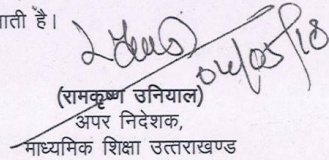 ाती है।
04/05/18
(रामकृष्ण उनियाल)
अपर निदेशक,
माध्यमिक शिक्षा उत्तराखण्ड